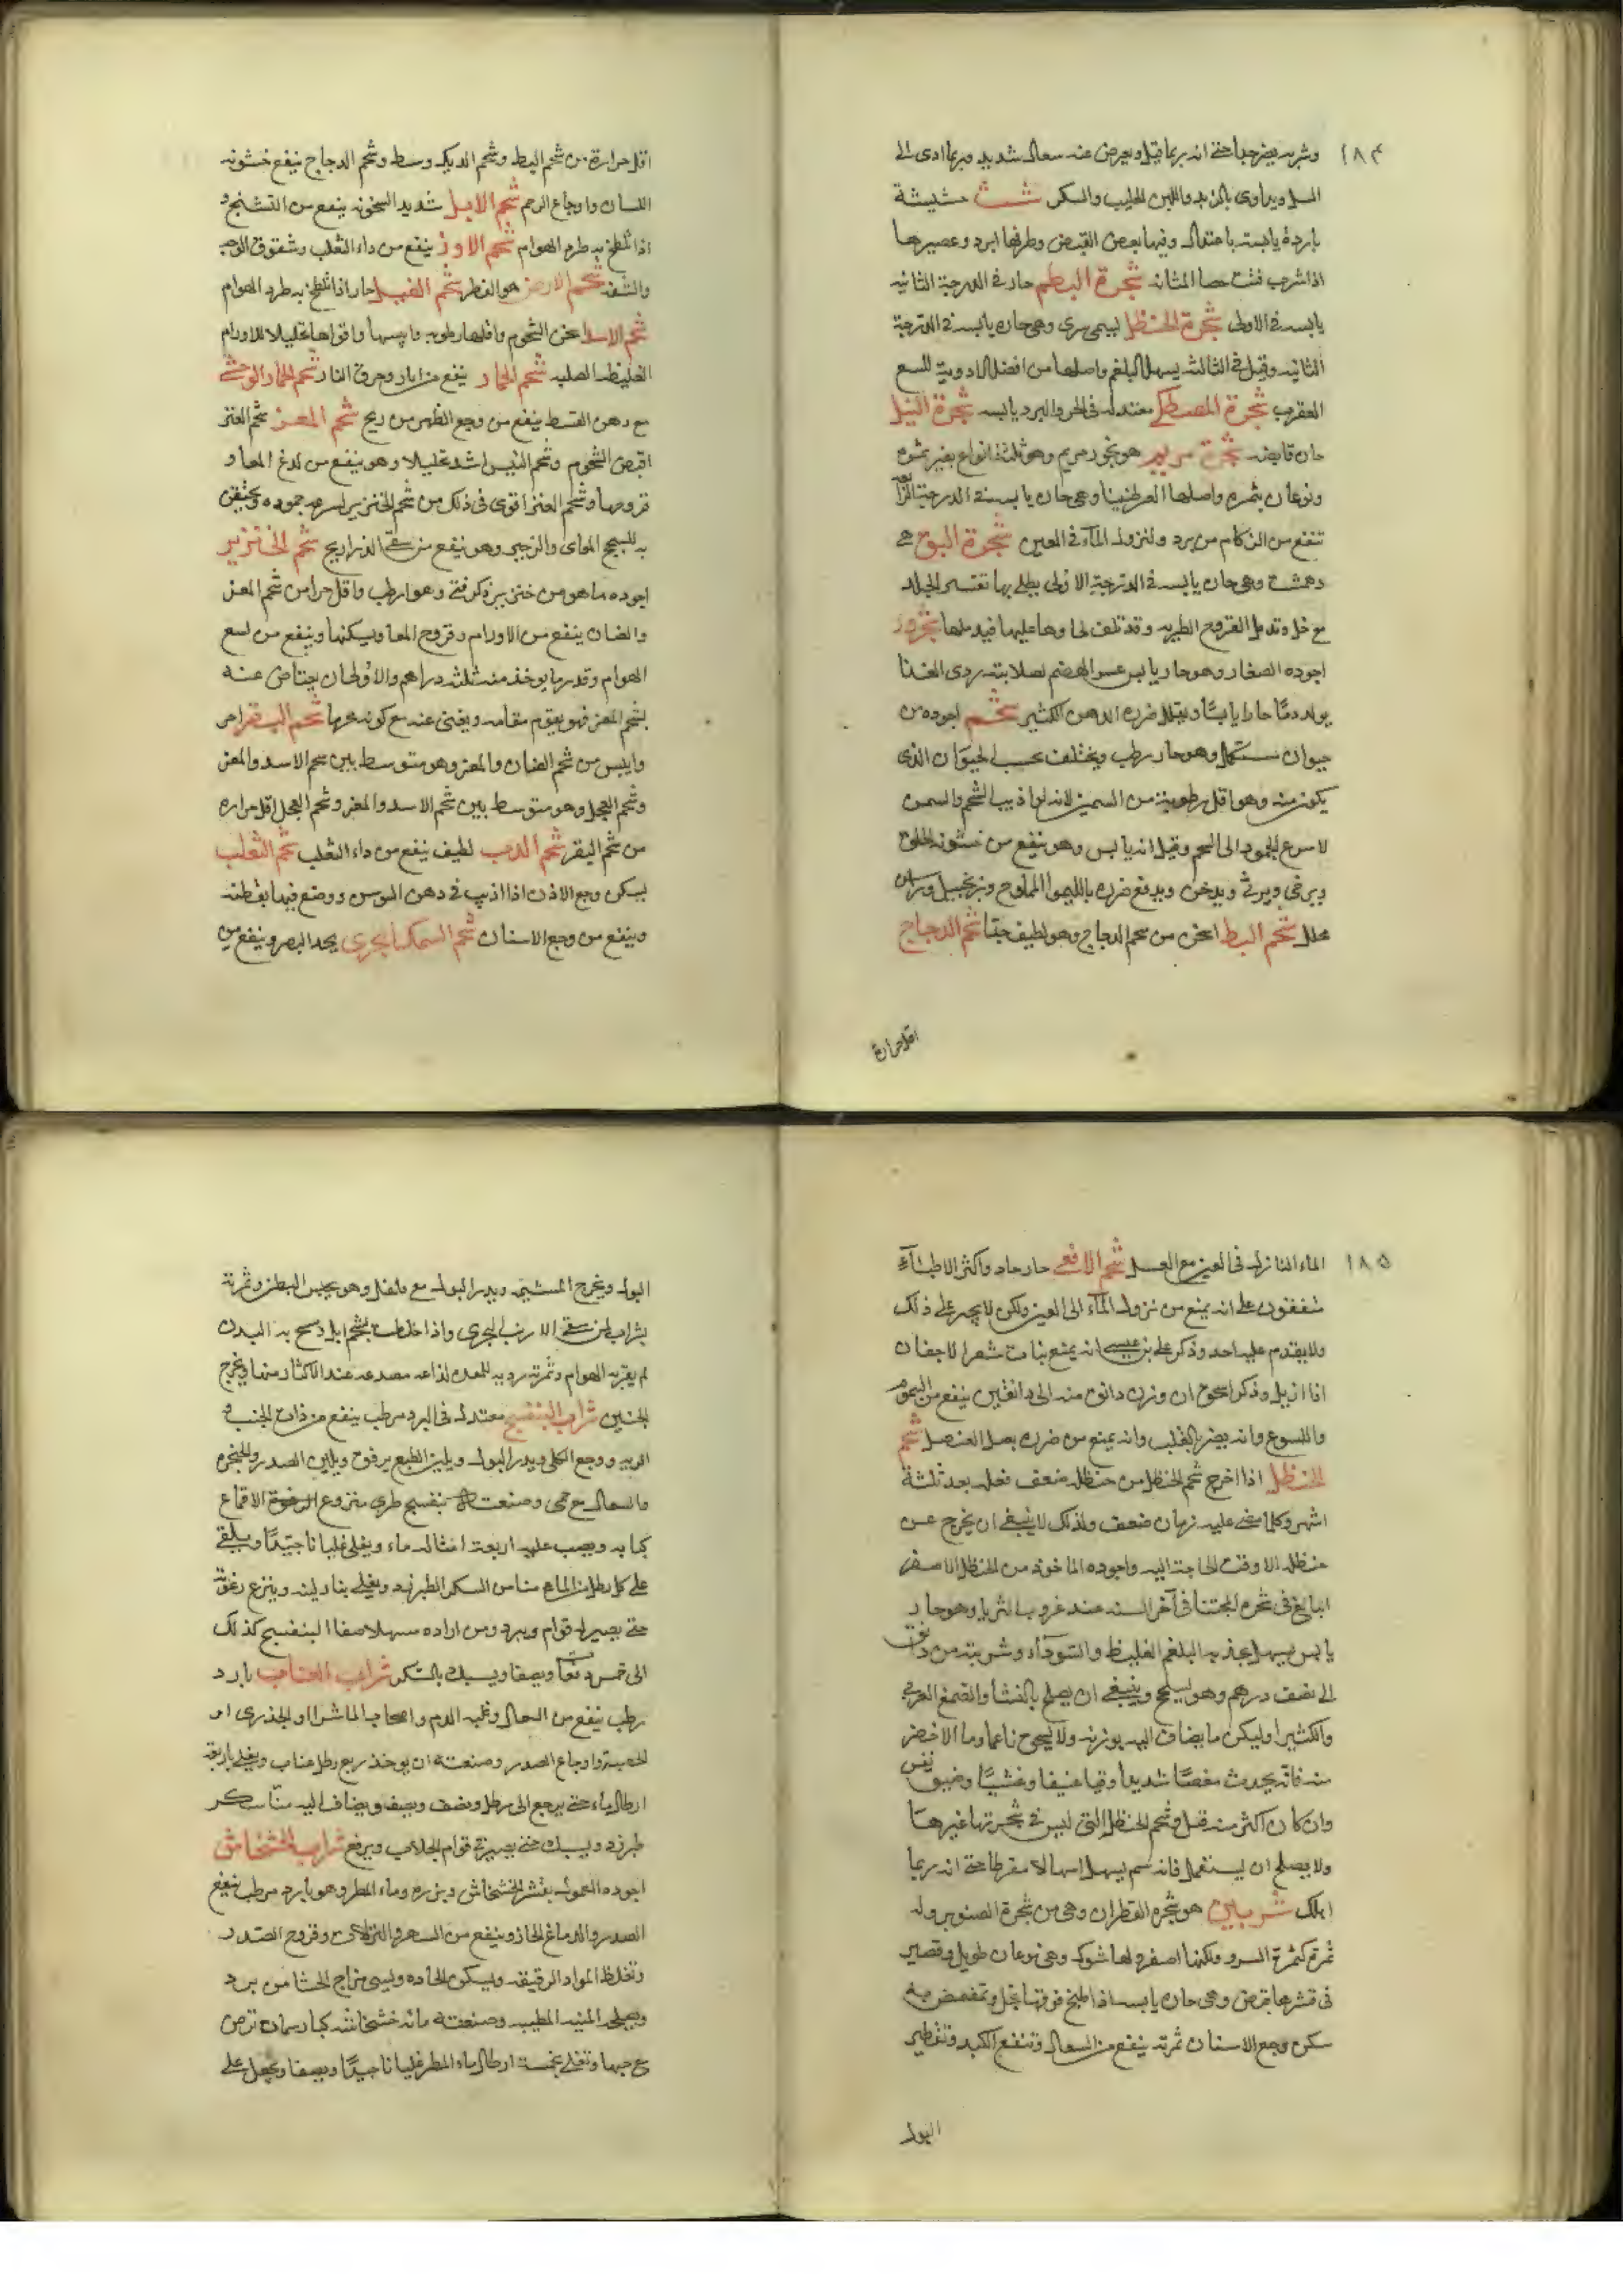 ١٨٤
وشربه يضر جدا حتى انه ربما قتل ويعرض عنه سعال شديد وربما ادى الى
السل ويداوى بالزبد واللبن الحليب والسكر شث حشيشة
باردة يابسة باعتدال وفيها بعض القبض وطرفها ابرد وعصيرها
اذا شرب فتت حصا المثانه شجرة البطم حار فى الدرجة الثانيه
يابسه فى الاولى شجرة الحنظل ليبمى سرى وهى حاره يابسه فى الدرجة
الثانيه وقيل فى الثالثه يسهل البلغم واصلها من افضل الادوية للسع
العقرب شجرة المصطكى معتدله فى الحر والبرد يابسه شجرة النيل
حاره قابضه شجرة مريم هو بخور مريم وهو ثلثة انواع بغير ثمره
ونوعان بثمره واصلها العرطنيثا وهى حاره يابسه فى الدرجة الرابعه
تنفع من الزكام من برد ولنزول المآء فى العين شجرة البق هى
دهمشت وهى حاره يابسه فى الدرجة الاولى يطلى بها تقشر الجلد
مع خل وتدمل القروح الطريه وقد تلف لحاوها عليها فيدملها شحرور
اجوده الصغار وهو حار يابس عسر الهضم لصلابته ردى الغذا
يولد دمًا حارا يابسًا ويقلل ضرره الدهن الكثير شحم اجوده من
حيوان مستكمل وهو حار رطب ويختلف بحسب الحيوان الذى
يكون منه وهو اقل رطوبة من السمين لانه لو اذيب الشحم والسمن
لاسرع الجمود الى الشحم وقيل انه يابس وهو ينفع من خشونه الحلق
ويرخى ويرثى ويدخن ويدفع ضرره بالليموا المملوح وزنجبيل وراسن
مخلل شحم البط اسخن من شحم الدجاج وهو لطيف جدًا شحم الدجاج
اقل حرارة
اقل حرارة من شحم البط وشحم الديك وسط وشحم الدجاج ينفع خشونه
اللسان واوجاع الرحم شحم الايل شديد السخونه ينفع من التشنج و
اذا تلطخ به طرد الهوام شحم الاوز ينفع من داء الثعلب وشقوق الوجه
والشفه شحم الارض هو الفطر شحم الفيل حار اذا تلطخ به طرد الهوام
شحم الاسد اسخن الشحوم واقلها رطوبه وايبسها واقواها تحليلا للاورام
الغليظه الصلبه شحم الحمار ينفع من اثار وحرق النار شحم الحمار الوحشى
مع دهن القسط ينفع من وجع الظهر من ريح شحم المعز شحم العنز
اقبض الشحوم وشحم التيس اشد تحليلا وهو ينفع من لدغ المعا و
قروحها وشحم العنز اقوى فى ذلك من شحم الخنزير لسرعه جموده ويحقن
به للسحج المعاى والزحير وهو ينفع من سقى الذراريح شحم الخنزير
اجوده ما هو من خنزير ذكر فتى وهو ارطب واقل حرا من شحم المعز
والضان ينفع من الاورام وقروح المعا ويسكنها وينفع من لسع
الهوام وقدر ما يوخذ منه ثلثه دراهم والاولى ان يعتاض عنه
بشحم المعز فهو يقوم مقامه ويغنى عنه مع كونه محرما شحم البقر احر
وايبس من شحم الضان والمعز وهو متوسط بين شحم الاسد والمعز
وشحم العجل وهو متوسط بين شحم الاسد والمعز وشحم العجل اقل حراره
من شحم البقر شحم الدب لطيف ينفع من داء الثعلب شحم الثعلب
يسكن وجع الاذن اذا اذيب فى دهن السوسن ووضع فيها بقطنه
وينفع من وجع الاسنان شحم السمك البحرى يحد البصر وينفع من
١٨٥
الماء النازل فى العين مع العسل شحم الافعى حار حاد واكثر الاطبآء
متفقون على انه يمنع من نزول المآء الى العين ولكن لا يجسر على ذلك
ولا يقدم عليه احد وذكر على بن عيسى انه يمنع نبات شعر الاجفان
اذا ازيل وذكر اسحق ان وزن دانق منه الى دانقين ينفع من السموم
واللسوع وانه يضر بالقلب وانه يمنع من ضرره بصل العنصل شحم
الحنظل اذا اخرج شحم الحنظل من حنظله ضعف فعله بعد ثلثة
اشهر وكلما مضى عليه زمان ضعف ولذلك لا ينبغى ان يخرج عن
حنظله الا وقت الحاجة اليه واجوده الماخوذ من الحنظل الاصفر
البالغ فى شجره المجتنا فى آخر السنه عند غروب الثريا وهو حار
يابس يسهل بجذبه البلغم الغليظ والسّودآء وشربته من دانق
الى نصف درهم وهو يسحج وينبغى ان يصلح بالنشا والصمغ العربى
والكثيرا وليكن ما يضاف اليه بوزنه ولا يسحق ناعما وما الاخضر
منه فانه يحدث مغصًا شديدا وقيا عنيفا وغشيًا وضيق نفس
وان كان اكثر منه قتل وشحم الحنظل التى ليس فى شجرتها غيرها
ولا يصلح ان يستعمل فانه سم يسهل اسهالا مفرطا حتى انه ربما
اهلك شربين هو شجره القطران وهى من شجرة الصنوبر وله
ثمرة كثمرة السرو ولكنها اصغر ولها شوك وهى نوعان طويل وقصير
فى قشرها قبض وهى حاره يابسه اذا طبخ ورقها بخل وتمضمض به
سكن وجع الاسنان ثمرته ينفع من السعال وتنفع الكبد وتقطير
البول
البول ويخرج المشيمه ويدر البول مع فلفل وهو يحبس البطن وثمرته
بشراب لمن سقى الارنب البحرى واذا خلطت بشحم ايل ومسح به البدن
لم يقربه الهوام وثمرته رديه للمعده لذاعه مصدعه عند الاكثار منها ويخرج
الجنين شراب البنفسج معتدل فى البرد رطب ينفع من ذات الجنب و
الريه ووجع الكلى ويدر البول ويلين الطبع برفق ويلين الصدر والحنجره
والسعال مع حمى وصنعته بنفسج طرى منزوع الاقماع
كبابه ويصب عليه اربعة امثاله ماء ويغلى غليانا جيّدًا ويلقى
على كل رطل من الماء منا من السكر الطبرزد ويغلى بنار لينه وينزع رغوته
حتى يصير له قوام ويبرد ومن اراده مسهلا صفا البنفسج كذلك
الى خمس دفعات ويصفا ويسبك بالسّكر شراب العناب بارد
رطب ينفع من السعال وغلبه الدم واصحاب الماشرا والجدرى او
الحصبه واوجاع الصدر وصنعته ان يوخذ ربع رطل عناب ويغلى باربعة
ارطال ماء حتى يرجع الى رطل ونصف ويصفى ويضاف اليه منّا سكر
طبرزد ويسبك حتى يصير فى قوام الجلاب ويرفع شراب الخشخاش
اجوده المعمول بقشر الخشخاش وبزره وماء المطر وهو بارد رطب ينفع
الصدر والدماغ الحار وينفع من السهر والنزلات وقروح الصّدر
وتغلظ المواد الرقيقه ويسكن الحاده ويسى مزاج الحشا من برد
ويصلحه الميبه المطيب وصنعته مائه خشخاشه كبار سمان ترض
مع حبها وتغلى بخمسة ارطال ماء المطر غليانا جيدًا ويصفا ويجعل على